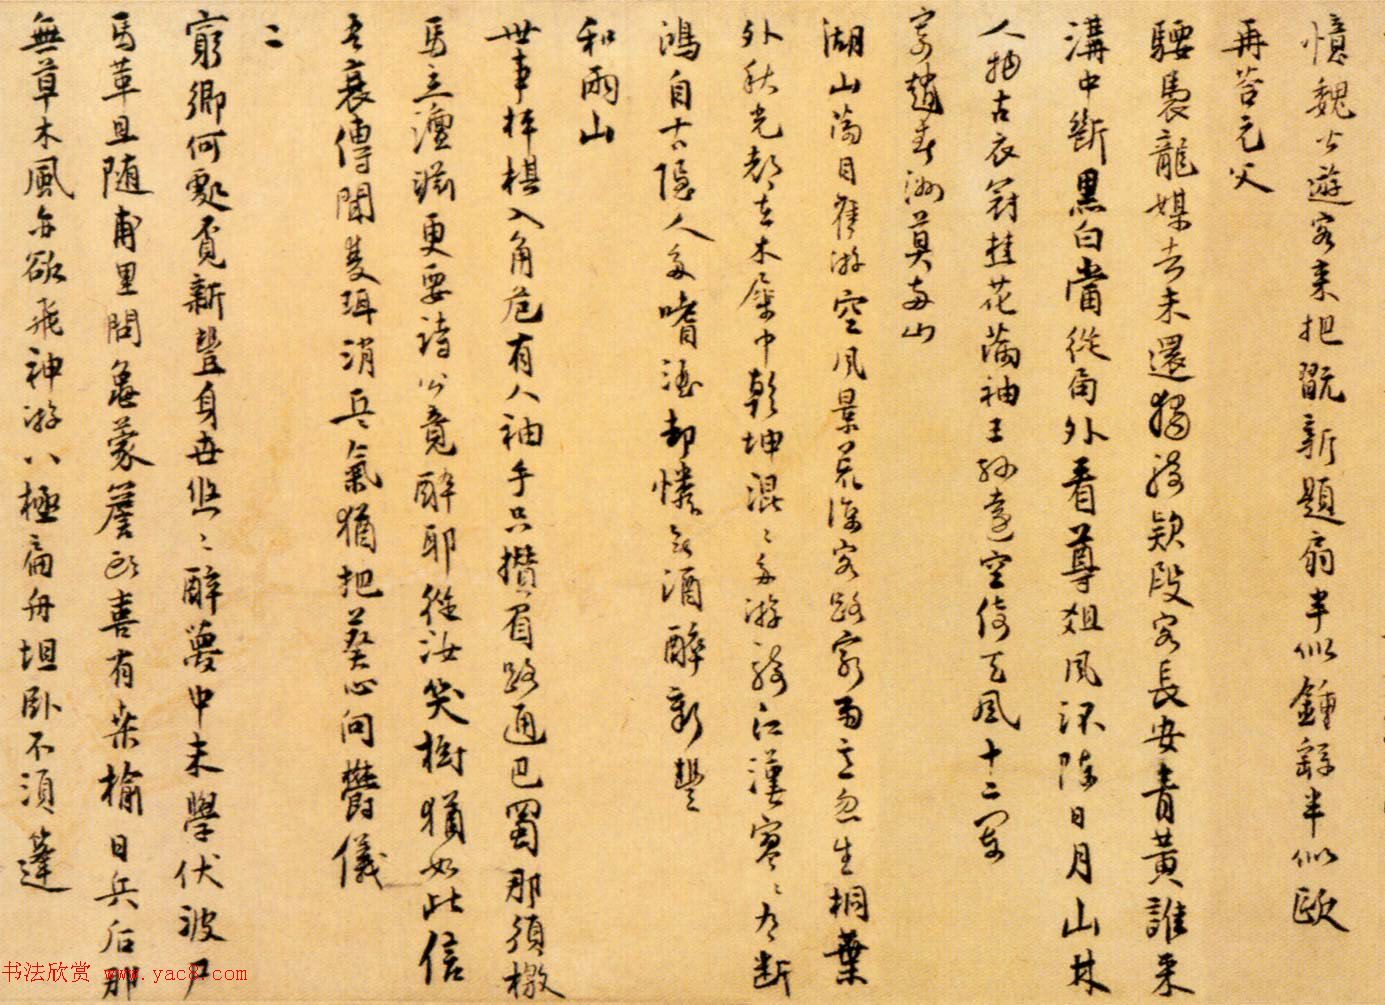 憶魏公遊客來把翫新題扇半似鍾繇半似歐
再荅元父
騕褭龍媒去未還獨騎款段客長安青黃誰采
溝中斷黑白當從局外看尊俎風流陪日月山林
人物古衣冠桂花滿袖王孫遠空倚天風十二闌
寄趙春洲莫南山
湖山滿目舊游空風景荒涼客路窮雨意忽生桐葉
外秋光都在木犀中乾坤混〻多游騎江漢寥〻有斷
鴻自古隱人多嗜酒却憐無酒醉新豐
和兩山
世事枰棋入角危有人袖手只攢眉路通巴蜀那須檄
馬立澶淵更要詩公竟醉耶從汝笑樹猶如此信
吾衰傳聞雙珥消兵氣猶把葵心向鬱儀
二
窮鄉何處覓新豐身世悠〻醉夢中未學伏波尸
馬革且隨甫里問龜蒙簷頭喜有桑榆日兵后那
無草木風亦欲飛神游八極扁舟坦卧不須蓬
书法欣赏 www.yac8.com